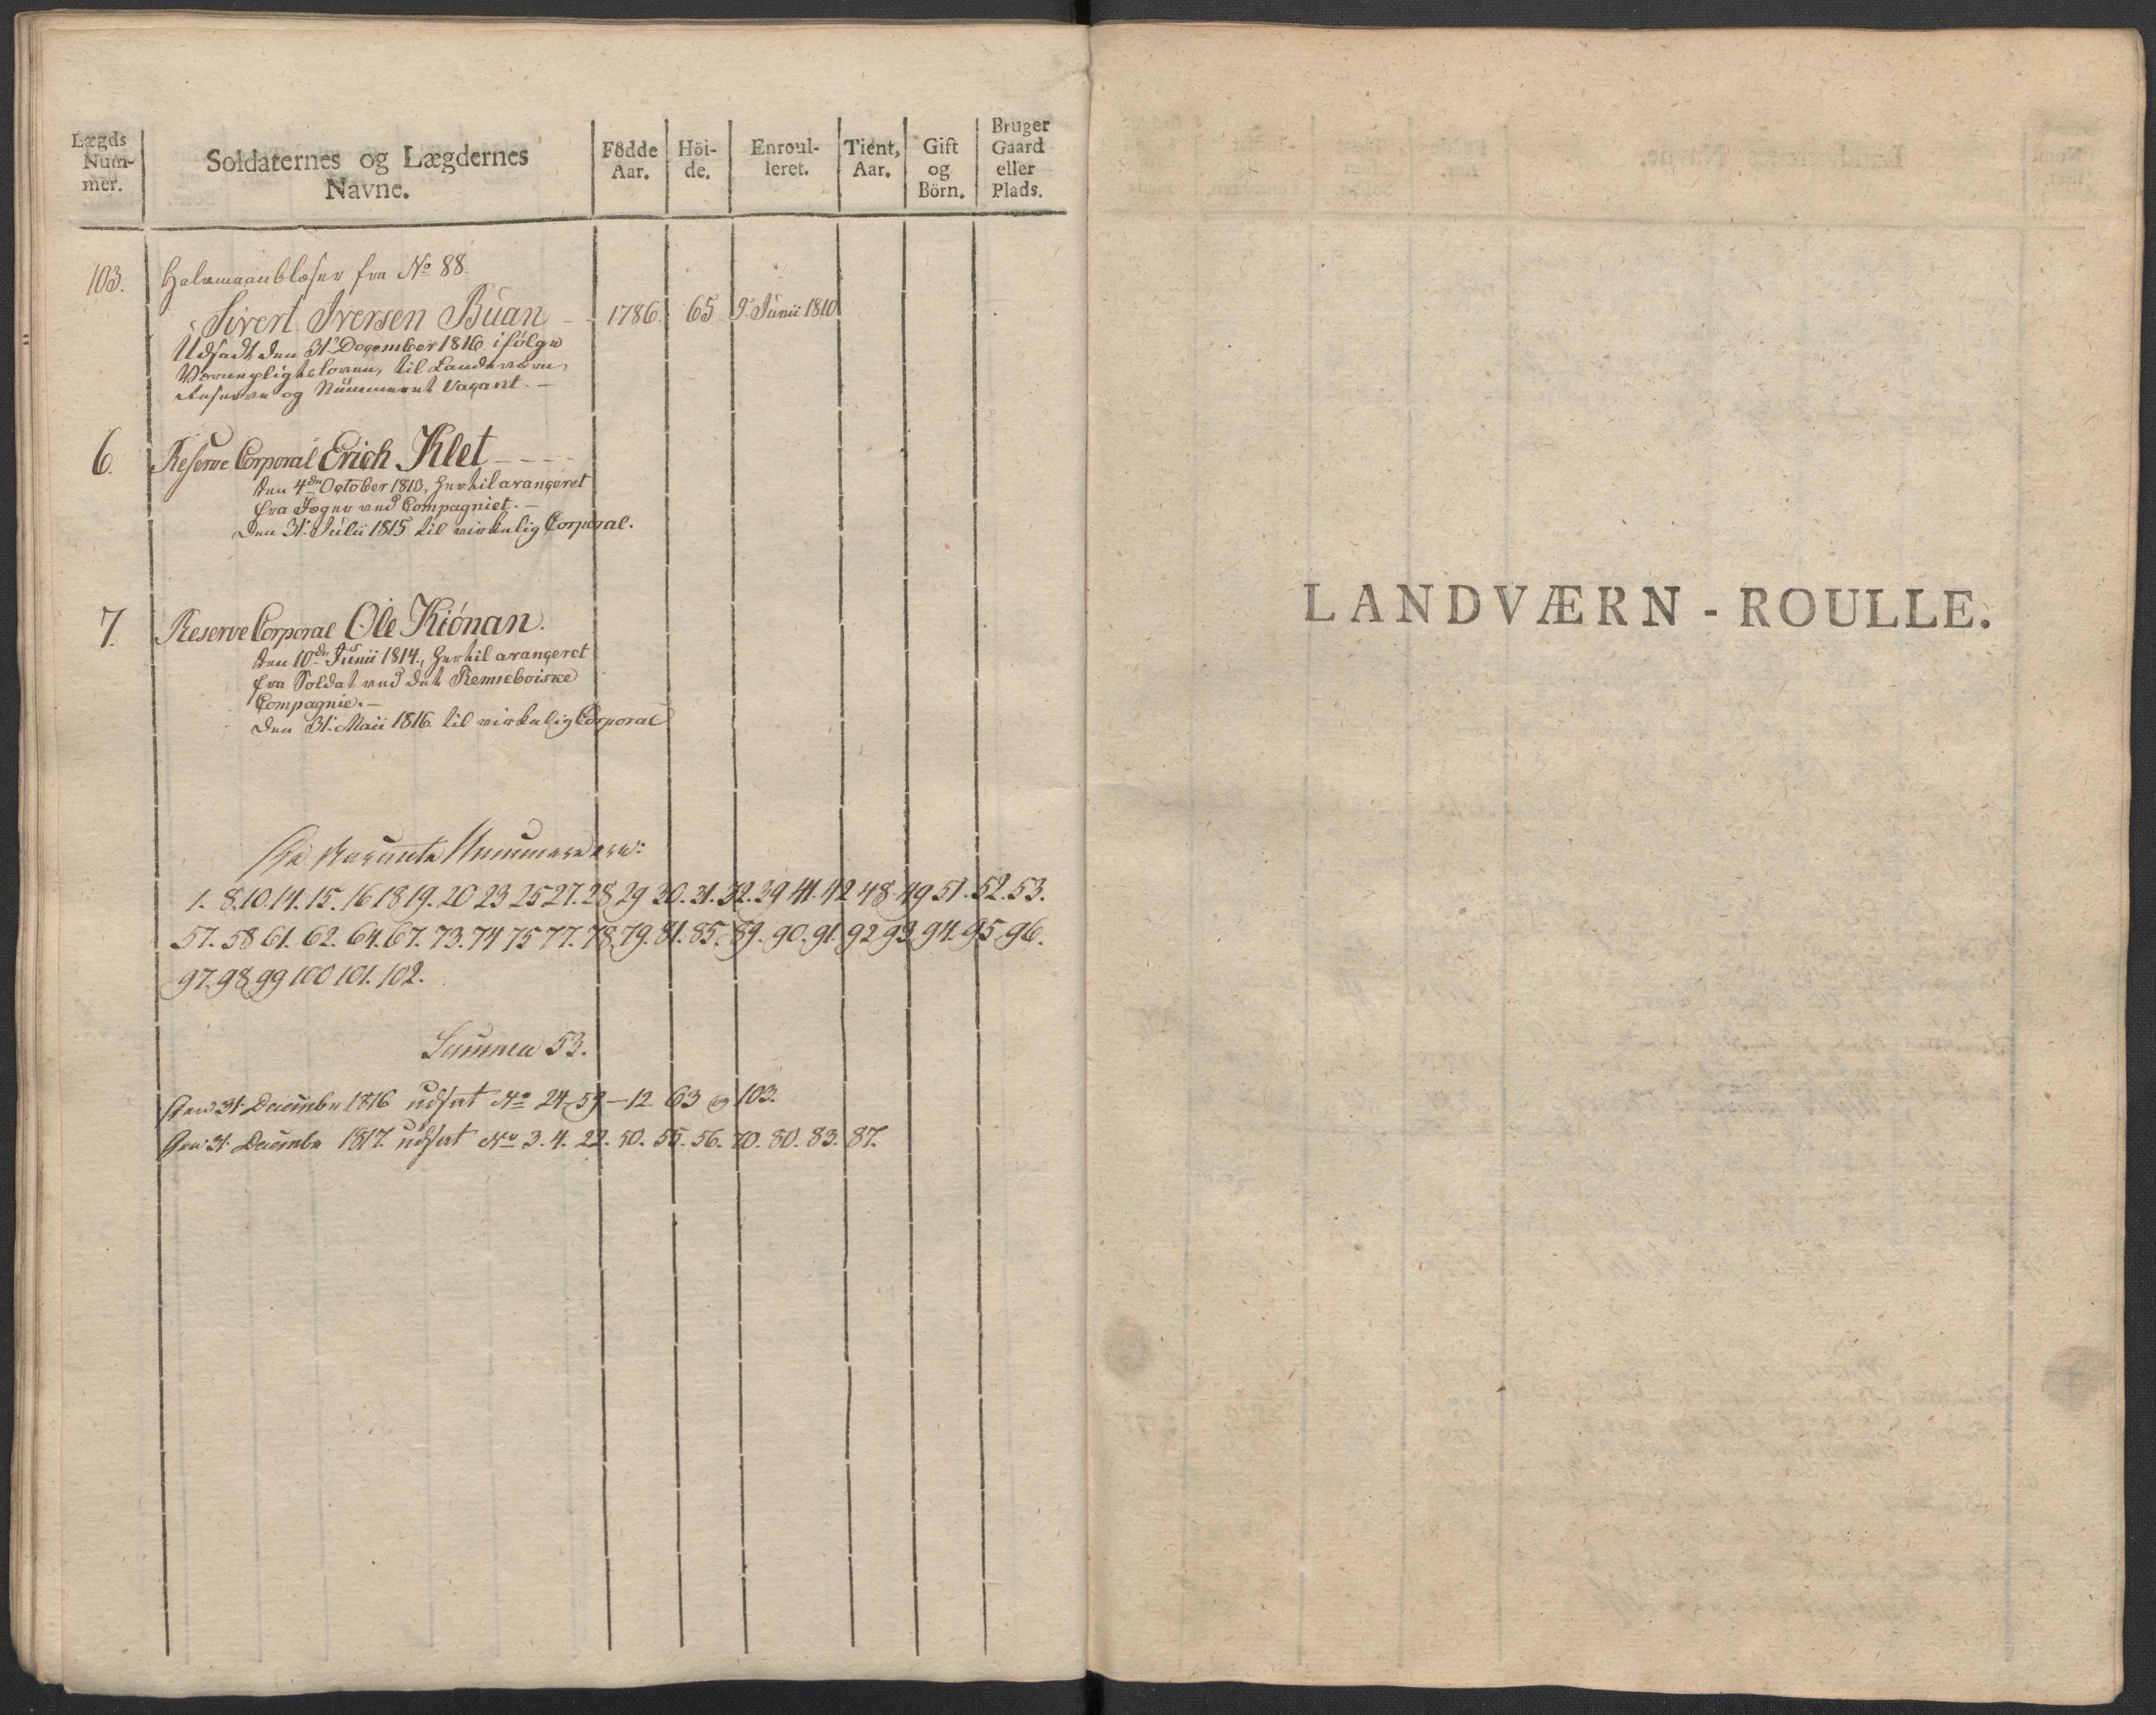 Lægds
Num-
mer.
Soldaternes og Lægdernes
Navne.
Födde
Aar.
Höi-
de.
Enroul-
leret.
Tient,
Aar.
Gift
og
Börn.
Bruger
Gaard
eller
Plads.
103. Halvmaanblæser fra No 88.
Sivert Iversen Buan – 1786. 65 9de Junii 1810
Udsadt den 31te December 1816 ifølge
Værnepligtsloven, til Landeværns
Reserve og Nummeret Vacant. –
6. Reserve Corporal Erich Klet - - - -
den 4de October 1813, hertil arangeret
fra Jæger ved Compagniet. –
Den 31te Julii 1815 til virkelig Corporal.
7. Reserve Corporal Ole Kiönan.
den 10de Junii 1814, hertil arangeret
fra Soldat ved det
Compagnie. –
Den 31te Maii 1816 til virkelig Corporal
Vacante Nummere ere:
1. 8. 10. 14. 15. 16 18 19. 20 23 25 27. 28 29 30. 31. 32. 39 41. 42 48 49 51. 52. 53.
57. 58 61. 62. 64. 67. 73. 74 75 77. 78. 79. 81. 85. 89. 90. 91. 92 93 94. 95 96.
97. 98 99 100 101. 102.
Summa 53.
Den 31te December 1816 udsat No 24. 59 – 12. 63 og 103.
Den 31te December 1817. udsat No 3. 4. 22. 50. 55. 56. 70. 80. 83. 87.
LANDVÆRN - ROULLE.